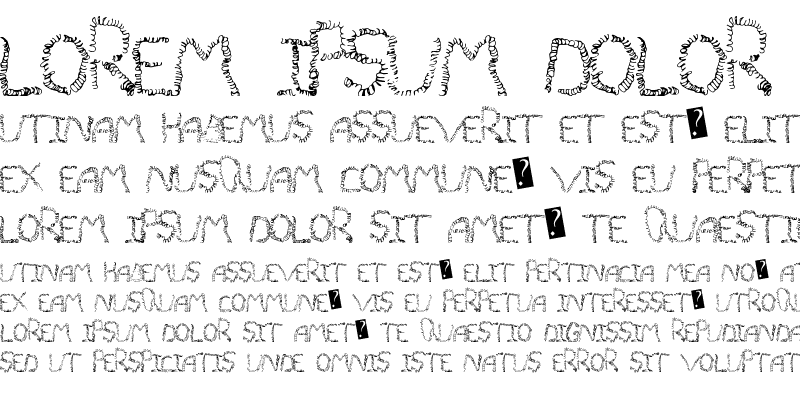 LOREM IPSUM DOLOR
UTINAM HABEMUS ASSUEVERIT ET EST� ELIT
EX EAM NUSQUAM COMMUNE� VIS EU PERPET
LOREM IPSUM DOLOR SIT AMET� TE QUAESTI
UTINAM HABEMUS ASSUEVERIT ET EST� ELIT PERTINACIA MEA NO� A
EX EAM NUSQUAM COMMUNE� VIS EU PERPETUA INTERESSET� UTROQU
LOREM IPSUM DOLOR SIT AMET� TE QUAESTIO DIGNISSIM REPUDIANDA
SED UT PERSPICIATIS UNDE OMNIS ISTE NATUS ERROR SIT VOLUPTAT